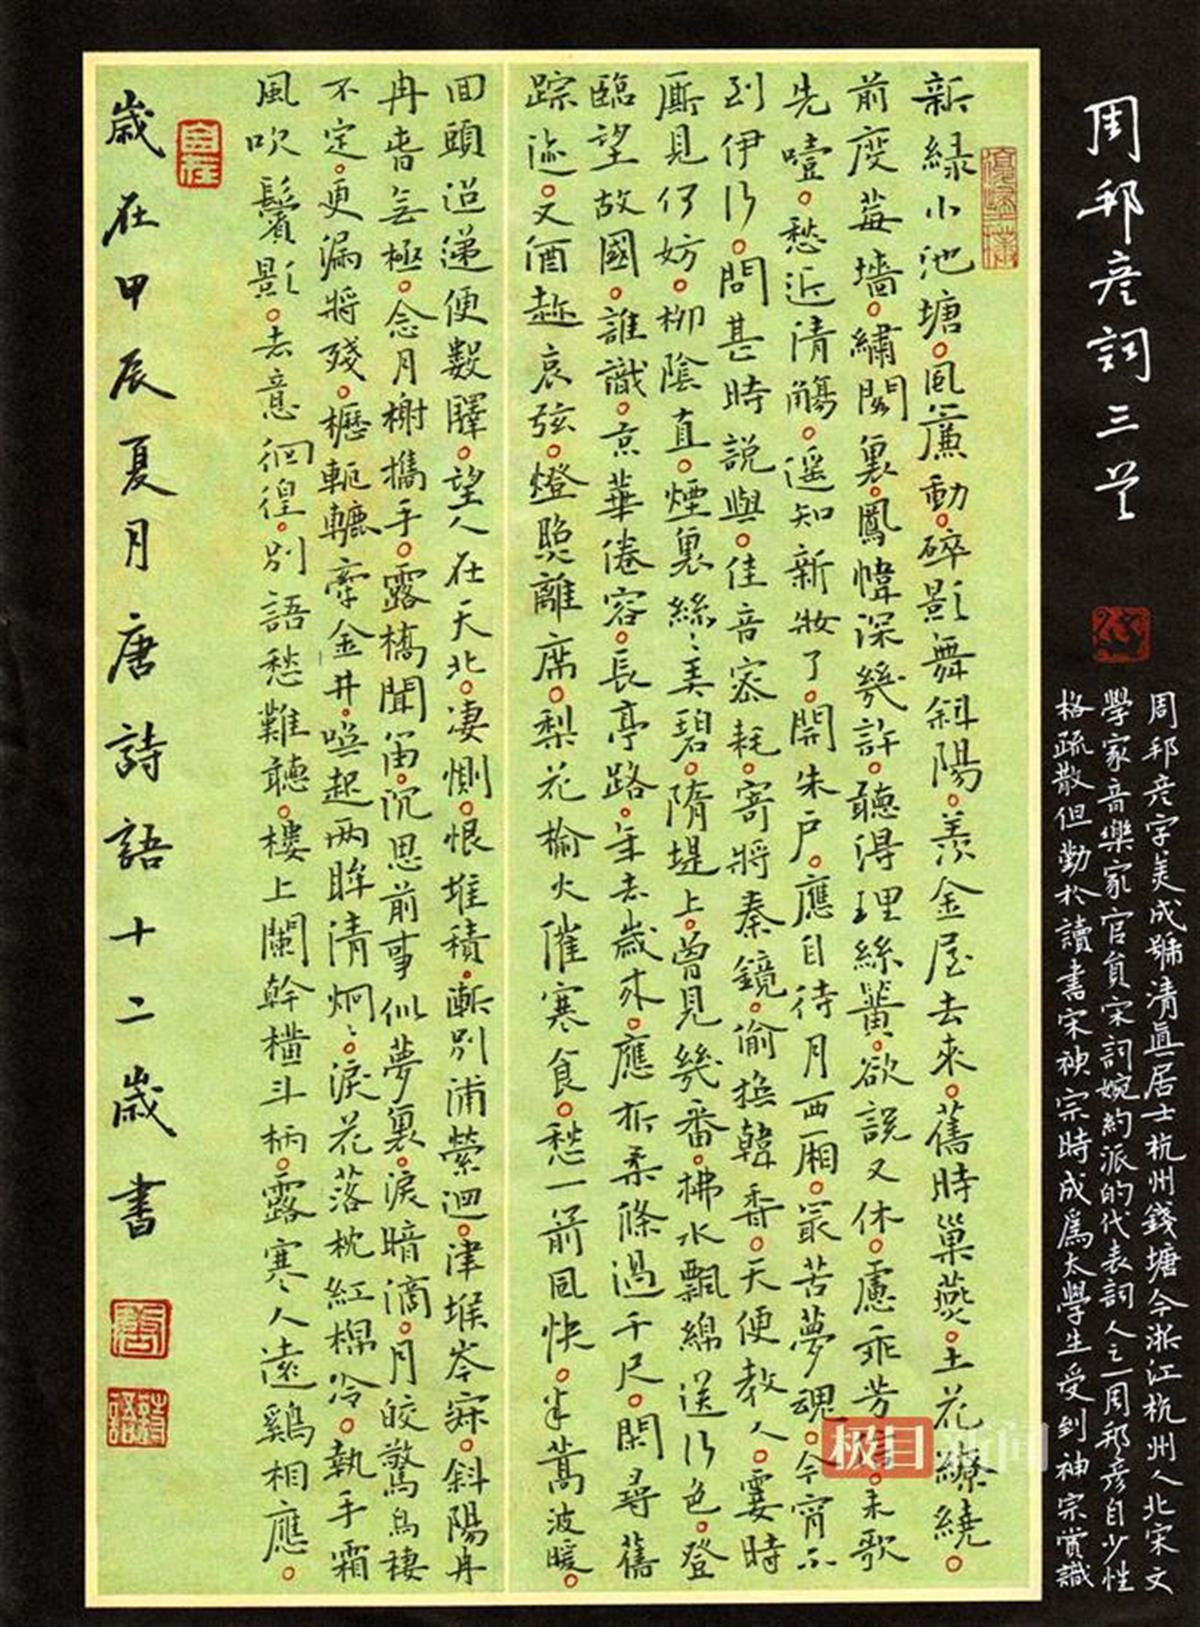 周邦彦詞三首
周邦彦字美成號清真居士杭州錢塘今浙江杭州人北宋文
學家音樂家官員宋詞婉約派的代表詞人之一周邦彦自少性
格疏散但勤於讀書宋神宗時成爲太學生受到神宗賞識
新緑小池塘。風簾動。碎影舞斜陽。羨金屋去來。舊時巢燕。土花繚繞。
前度莓墻。繡閣裏。鳳幃深幾許。聽得理絲簧。欲説又休。慮乖芳。未歌
先噎。愁近清觴。遥知新妝了。開朱户。應自待月西廂。最苦夢魂。今宵不
到伊行。問甚時説與。佳音密耗。寄將秦鏡。偷换韓香。天便教人。霎時
厮見何妨。柳陰直。煙裏絲絲弄碧。隋堤上。曾見幾番。拂水飄綿送行色。登
臨望故國。誰識。京華倦客。長亭路。年去歲來。應折柔條過千尺。閑尋舊
踪迹。又酒趁哀弦。燈照離席。梨花榆火催寒食。愁一箭風快。半篙波暖。
回頭迢遞便數驛。望人在天北。凄惻。恨堆積。漸别浦縈迴。津堠岑寂。斜陽冉
冉春無極。念月榭攜手。露橋聞笛。沉思前事似夢裏。淚暗滴。月皎驚烏棲
不定。更漏將殘。轆牽金井。唤起兩眸清炯炯。淚花落枕紅棉冷。執手霜
風吹鬢影。去意徊徨。别語愁難聽。樓上闌幹橫斗柄。露寒人遠鷄相應。
歲在甲辰夏月唐詩語十二歲書
唐
詩語
极目新闻